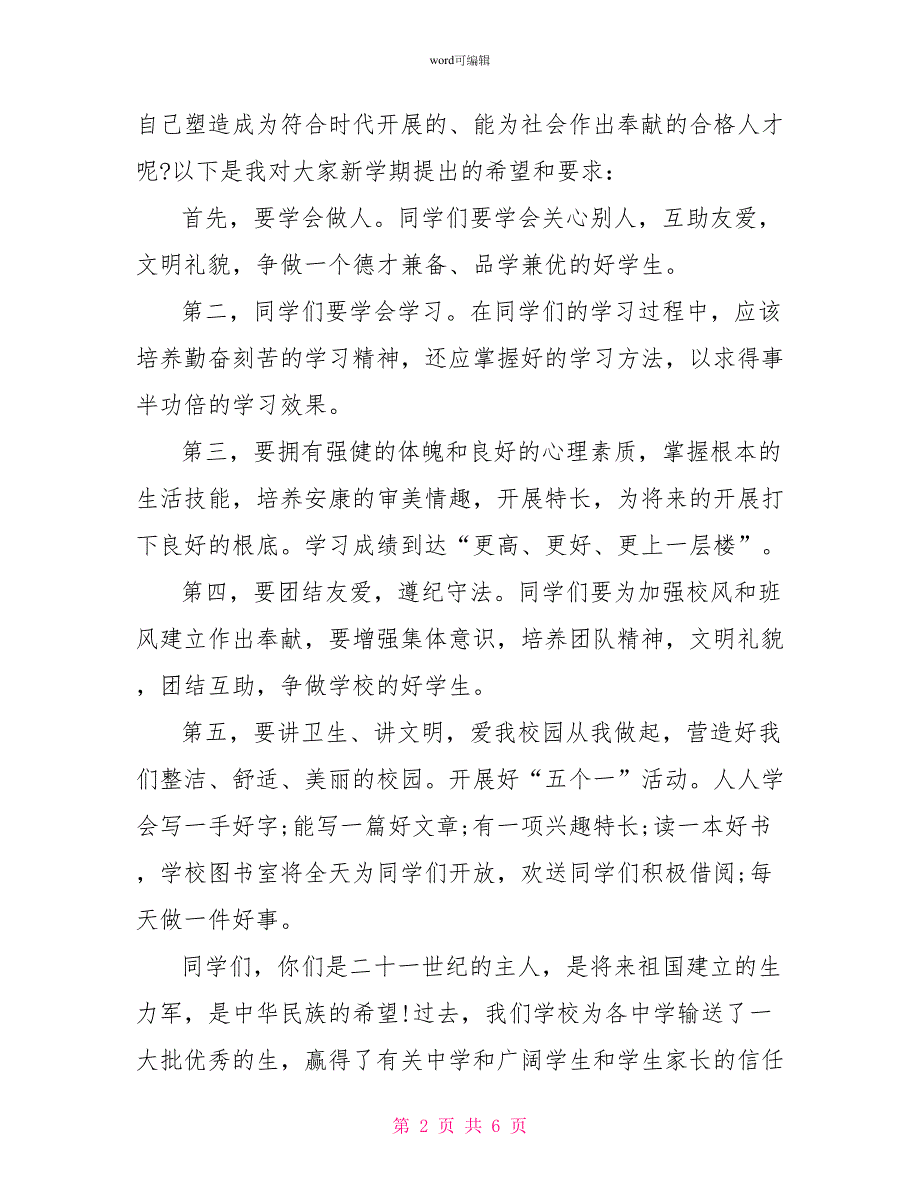 word可编辑
自己塑造成为符合时代开展的、能为社会作出奉献的合格人才
呢?以下是我对大家新学期提出的希望和要求：
首先，要学会做人。同学们要学会关心别人，互助友爱，
文明礼貌，争做一个德才兼备、品学兼优的好学生。
第二，同学们要学会学习。在同学们的学习过程中，应该
培养勤奋刻苦的学习精神，还应掌握好的学习方法，以求得事
半功倍的学习效果。
第三，要拥有强健的体魄和良好的心理素质，掌握根本的
生活技能，培养安康的审美情趣，开展特长，为将来的开展打
下良好的根底。学习成绩到达“更高、更好、更上一层楼”。
第四，要团结友爱，遵纪守法。同学们要为加强校风和班
风建立作出奉献，要增强集体意识，培养团队精神，文明礼貌
，团结互助，争做学校的好学生。
第五，要讲卫生、讲文明，爱我校园从我做起，营造好我
们整洁、舒适、美丽的校园。开展好“五个一”活动。人人学
会写一手好字;能写一篇好文章;有一项兴趣特长;读一本好书
，学校图书室将全天为同学们开放，欢送同学们积极借阅;每
天做一件好事。
同学们，你们是二十一世纪的主人，是将来祖国建立的生
力军，是中华民族的希望!过去，我们学校为各中学输送了一
大批优秀的生，赢得了有关中学和广阔学生和学生家长的信任
第 2 页 共 6 页